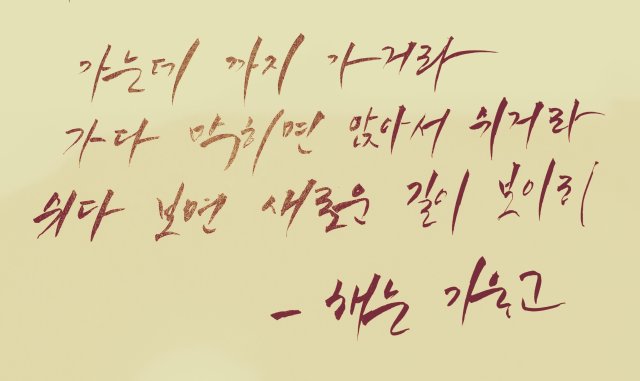 가는데 까지 가거라
가다 막히면 앉아서 쉬거라
쉬다 보면 새로운 길이 보이리
- 해는 가올고